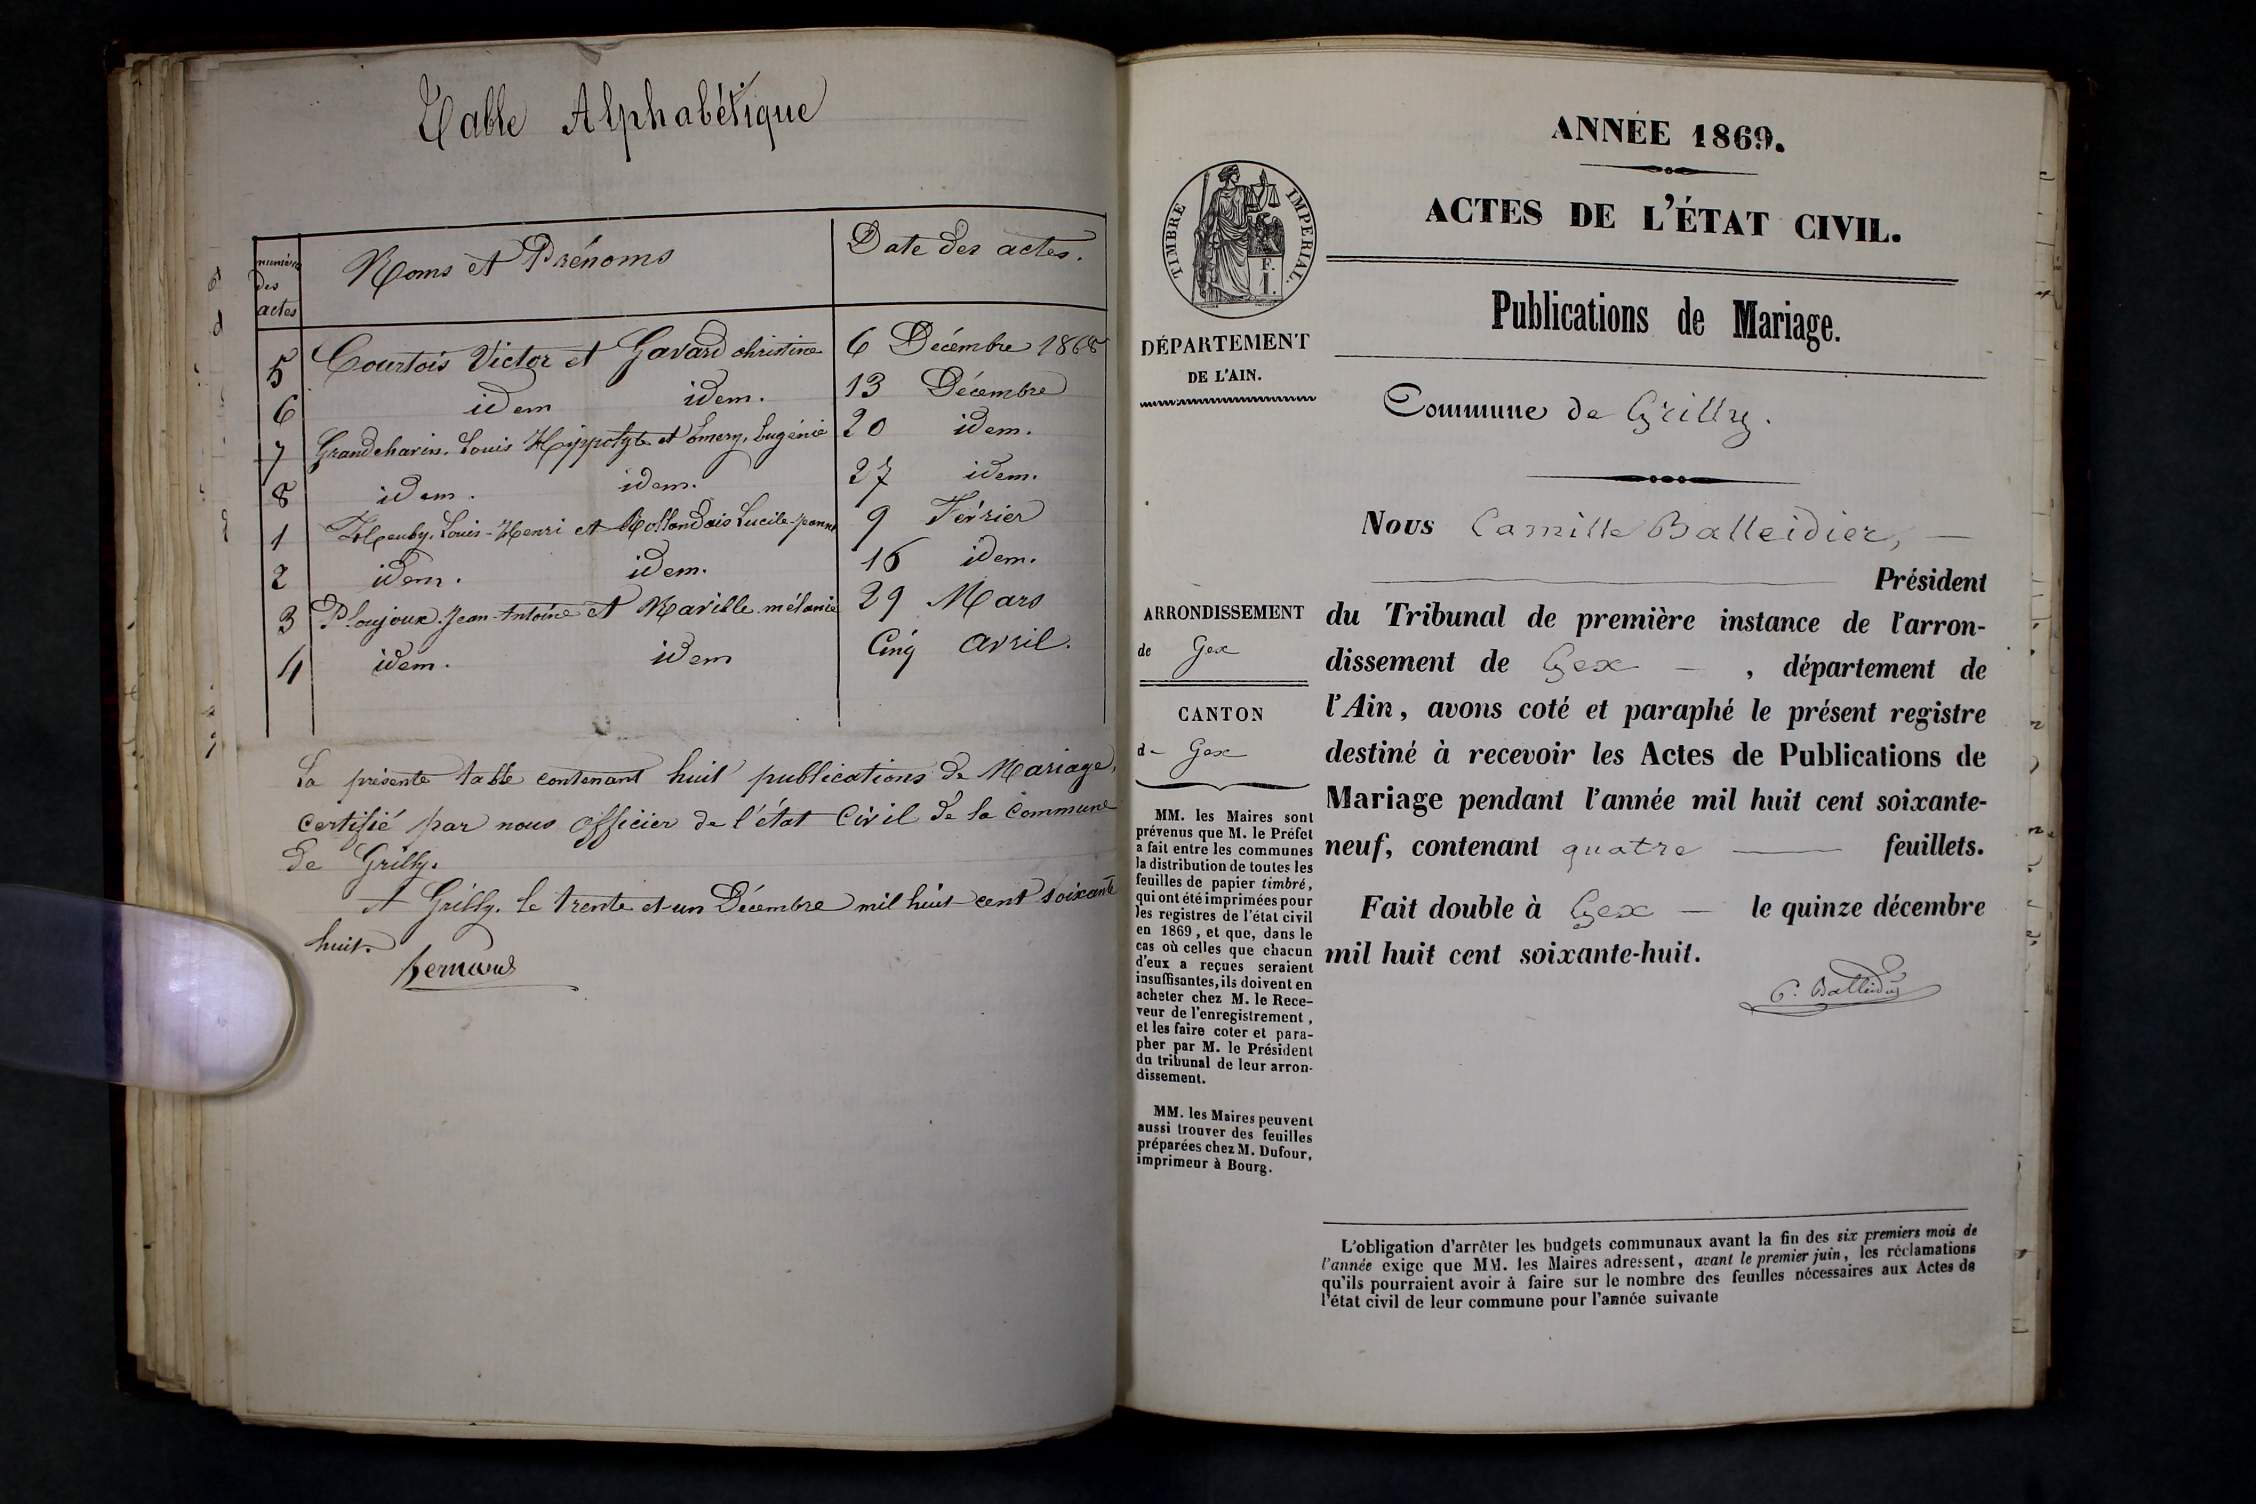 Table Alphabétique
numéros des actes | Noms et Prénoms | Date des actes.
5 | Courtois Victor et Gavard christine | 6 Décembre 1868
6 | idem idem. | 13 Décembre
7 | Grandcharin. Louis Hippolyte et Emery, Eugénie | 20 idem.
8 | idem. idem. | 27 idem.
1 | Louis-Henri et Rollandais Lucile-jeanne | 9 Février
2 | idem. idem. | 16 idem.
3 | Ploujoux. Jean-Antoine et Raville mélanie | 29 Mars
4 | idem. idem | Cinq avril.
La présente table contenant huit publications de Mariage,
Certifié par nous officier de l'état Civil de la Commune
de Grilly.
A Grilly. le trente et un Décembre mil huit cent soixante
huit.
Bernard
ANNÉE 1869.
ACTES DE L'ÉTAT CIVIL.
Publications de Mariage.
TIMBRE IMPÉRIAL.
F.
1.
DÉPARTEMENT
DE L'AIN.
ARRONDISSEMENT
de Gex
CANTON
d- Gex
MM. les Maires sont
prévenus que M. le Préfet
a fait entre les communes
la distribution de toutes les
feuilles de papier timbré,
qui ont été imprimées pour
les registres de l'état civil
en 1869, et que, dans le
cas où celles que chacun
d'eux a reçues seraient
insuffisantes, ils doivent en
acheter chez M. le Rece-
veur de l'enregistrement,
et les faire coter et para-
pher par M. le Président
du tribunal de leur arron-
dissement.
MM. les Maires peuvent
aussi trouver des feuilles
préparées chez M. Dufour,
imprimeur à Bourg.
Commune de Grilly.
Nous Camille Balleidier, —
Président
du Tribunal de première instance de l'arron-
dissement de Gex — , département de
l'Ain, avons coté et paraphé le présent registre
destiné à recevoir les Actes de Publications de
Mariage pendant l'année mil huit cent soixante-
neuf, contenant quatre — feuillets.
Fait double à Gex — le quinze décembre
mil huit cent soixante-huit.
C. Balleidier
L'obligation d'arrêter les budgets communaux avant la fin des six premiers mois de
l'année exige que MM. les Maires adressent, avant le premier juin, les réclamations
qu'ils pourraient avoir à faire sur le nombre des feuilles nécessaires aux Actes de
l'état civil de leur commune pour l'année suivante